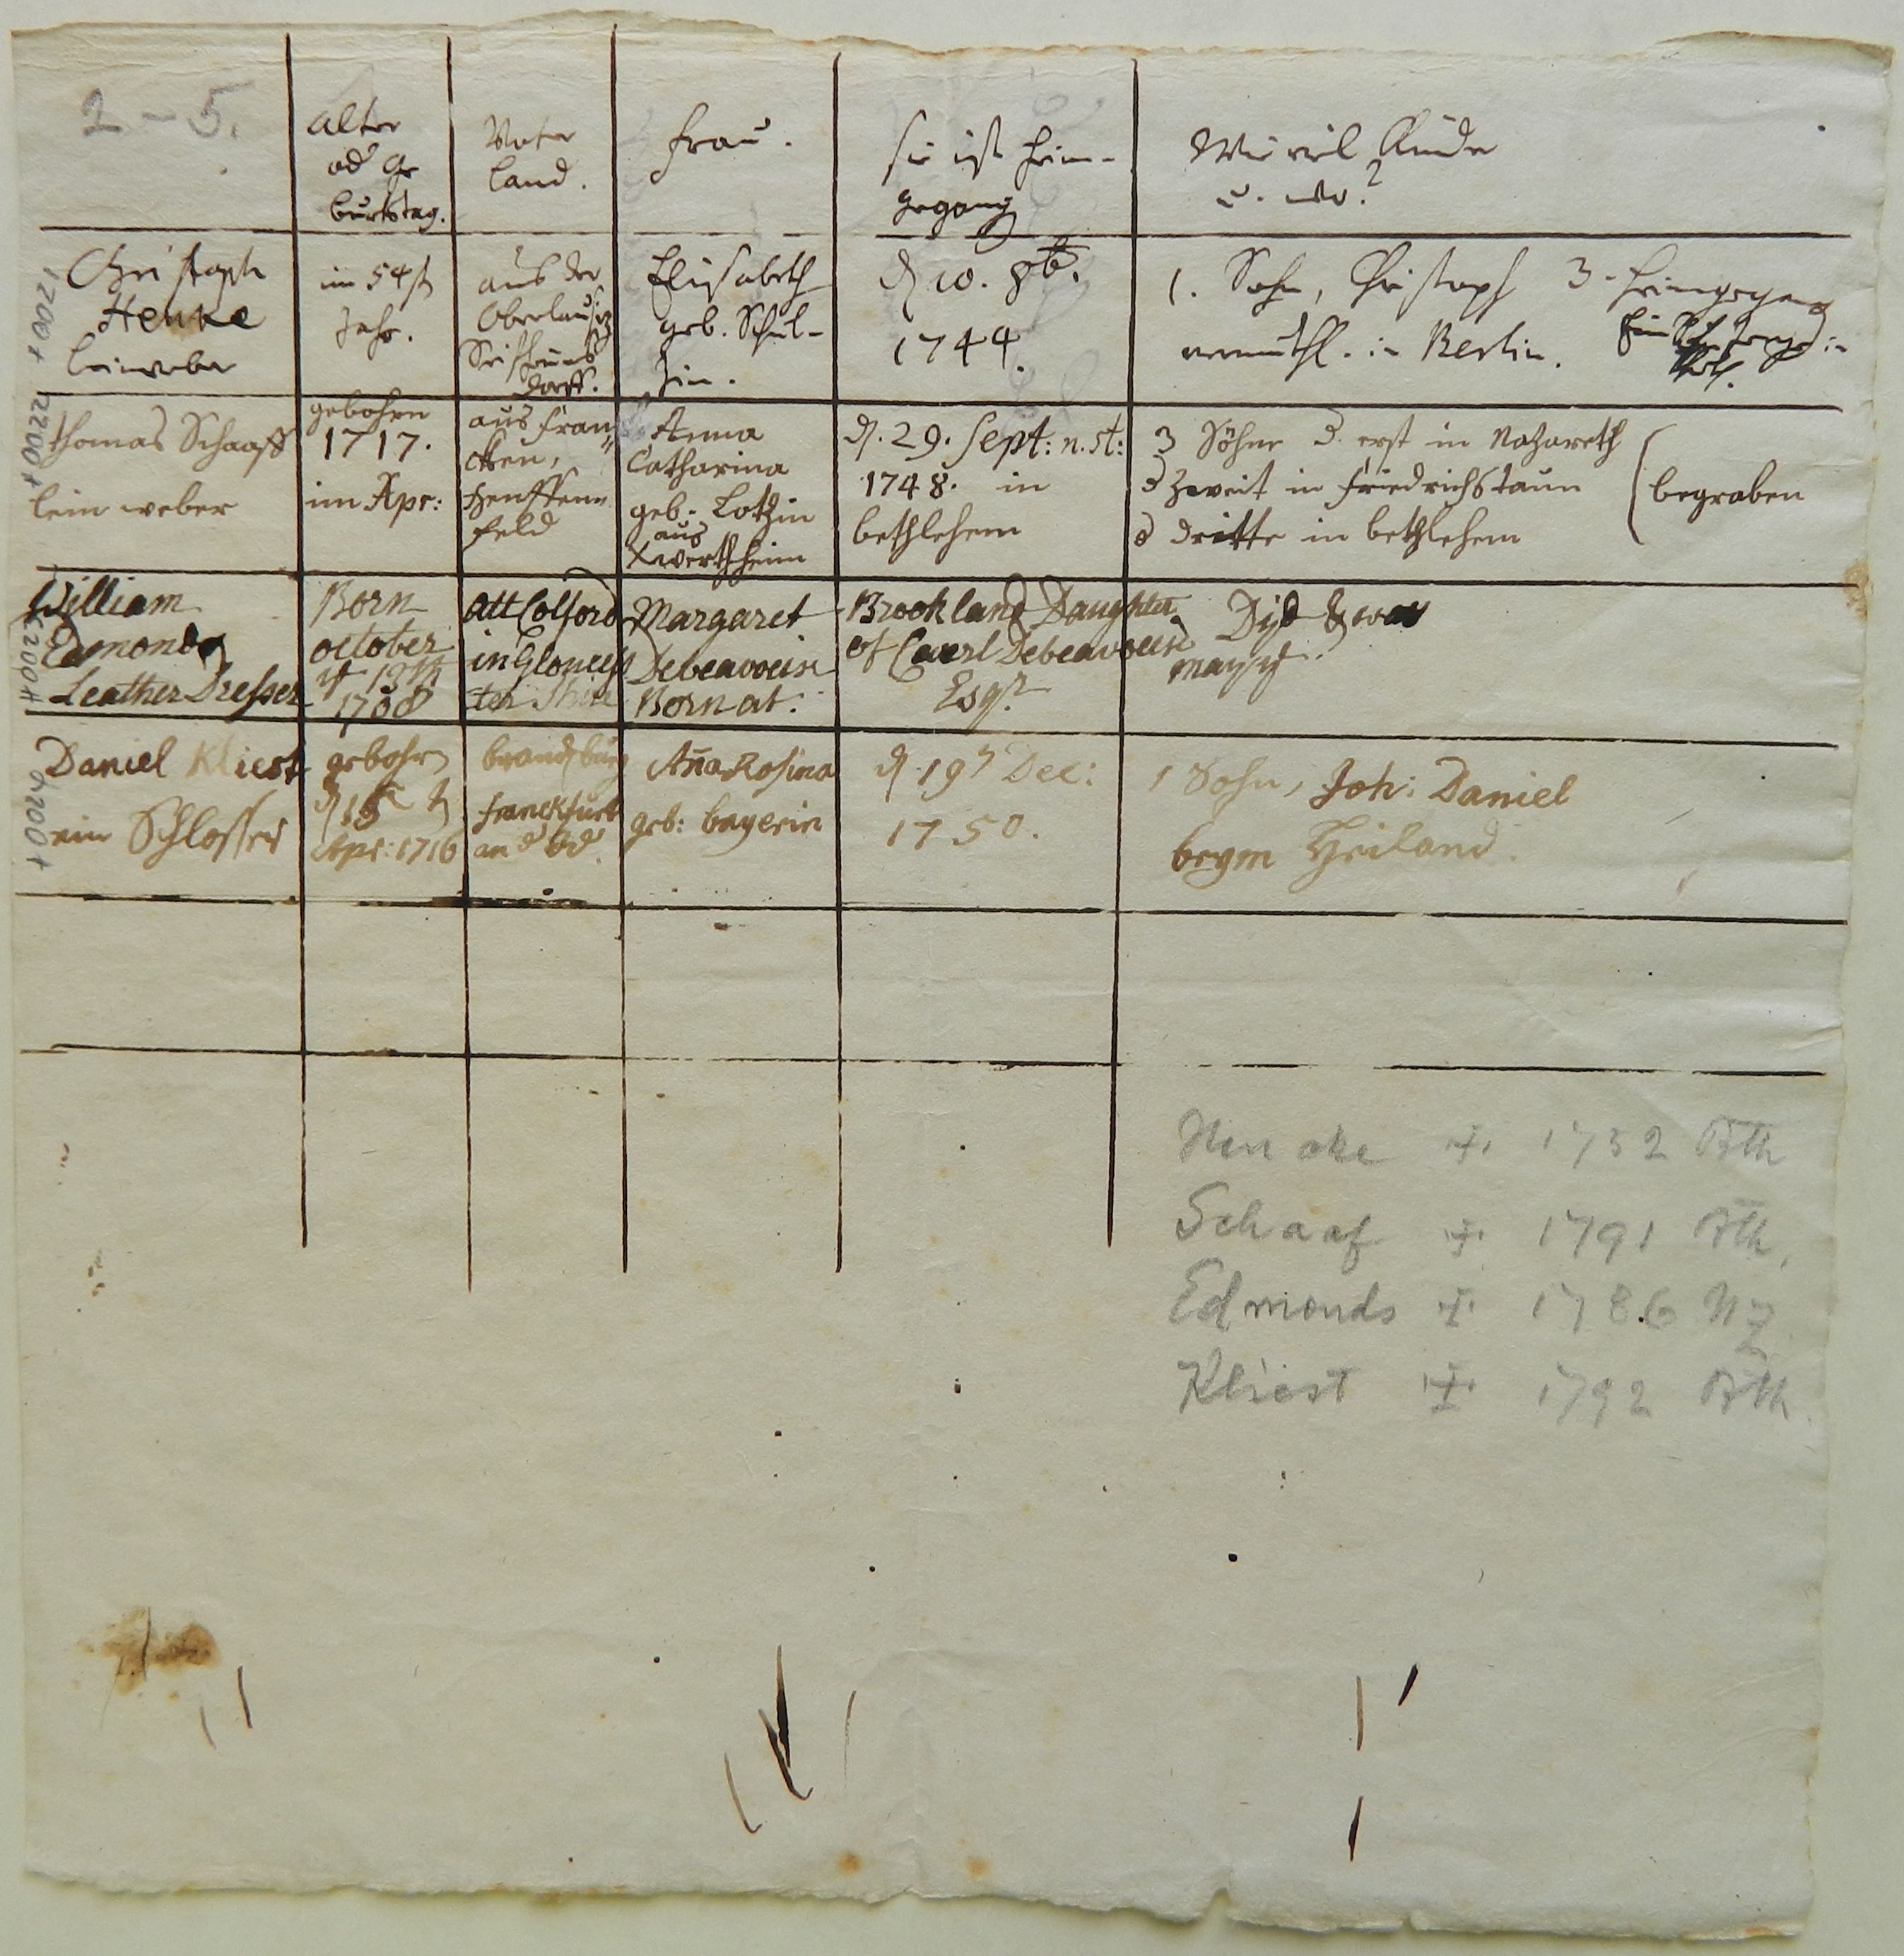 2 – 5.
alter
od Ge
burtstag.
Vater
land.
Frau.
sie ist heim-
gegang
Wie viel Kinder
u. wo?
Christoph
Henke
leinweber
im 54st
Jahr.
aus der
Oberlausiz
Seifhenners
dorff.
Elisabeth
geb. Schul-
zin.
d 10. 8b.
1744.
1. Sohn, Christoph
vermuthl. in Berlin.
3. heimgegang
Thomas Schaaff
lein weber
gebohren
1717.
im Apr:
aus Fran„
cken,
Henffen„
feld
Anna
Catharina
geb. Lotzin
aus
wertheim
d. 29. Sept: n. st:
1748. in
bethlehem
3 Söhne d. erst in Nazareth
d zweit in friedrichstaun
d dritte in bethlehem
begraben
William
Edmonds
Leather Dresser
Born
october
ye 13th
1708
att Colford
in Glouces
ter Shire
Margaret
Debeavoise
Born at:
Brookland Daughter
of Carel Debeavoise
Esqr.
Daniel Kliest
ein Schlosser
gebohrn
Apr: 1716
brandburg
franckfurt
an d Od.
Aña Rosina
geb: bayerin
d 19 Dec:
1750.
1 Sohn, Joh: Daniel
beym Heiland.
Hencke + 1752 Bth
Schaaf + 1791 Bth,
Edmonds + 1786 Nz
Kliest + 1792 Bth.